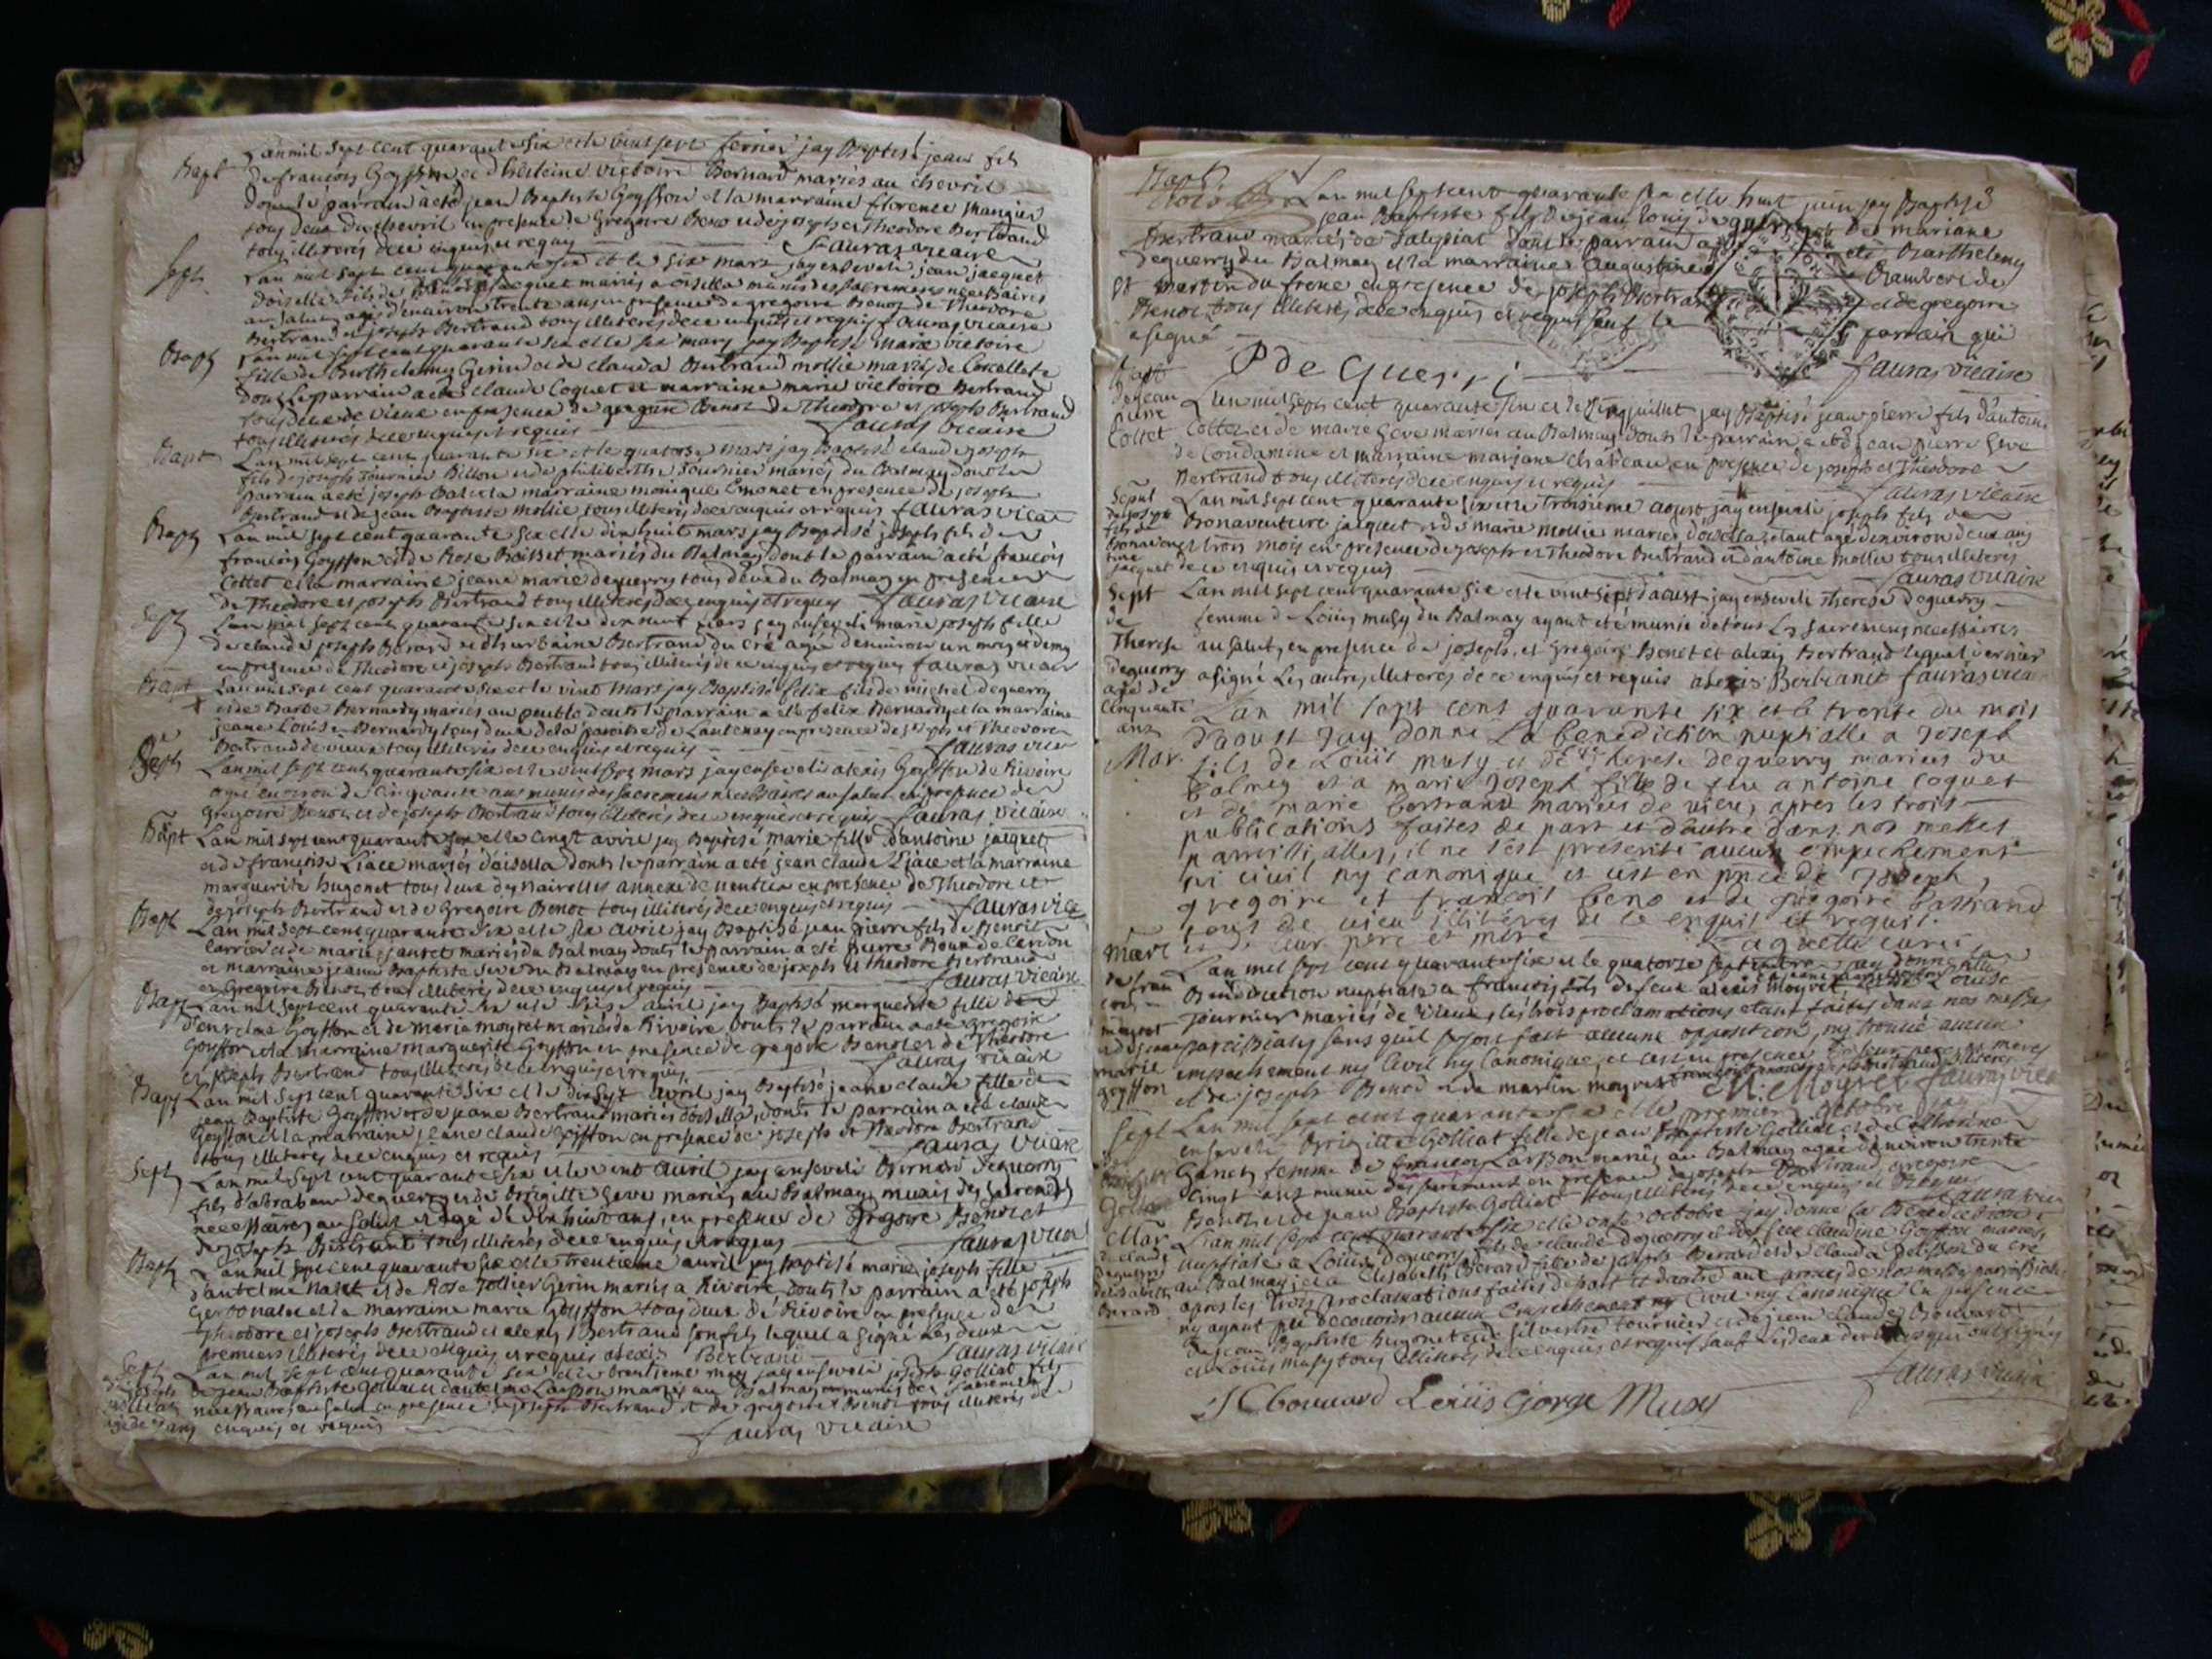 Bapt
Lan mil sept cent quarante six et le vint sept fevrier jay Baptisé jean fils
de francois Goyffon et dhilleine victoire Bernard mariés au chevril
dont le parrain a eté jean Baptiste Goyffon et la marraine florence
tous deux du chevril en presence de Gregoire Benoz et de joseph et Theodore Bertrand
tous illiterés de ce enquis et requis fauras vicaire
Sept
Lan mil sept cent quarante six et le six mars jay enseveli jean jacquet
doisella fils de jacquet mariés a oisella munis des sacremens necessaires
au salut agé denviron trente ans en presence de gregoire Benoz de Theodore
Bertrand et joseph Bertrand tous illiterés de ce enquis et requis fauras vicaire
Bapt
Lan mil sept cent quarante six et le six mars jay Baptisé marie victoire
fille de Barthelemy Gerin et de clauda Bertrand mollie mariés de Corcellet
dont le parrain a eté claude Coquet et marraine marie victoire Bertrand
tous deux de vieux en presence de gregoire Benoz de Theodore et joseph Bertrand
tous illiterés de ce enquis et requis fauras vicaire
Bapt
Lan mil sept cent quarante six et le quatorze mars jay baptisé claude joseph
fils de joseph Tournier Billon et de philiberthe Tournier mariés du Balmay dont le
parrain a eté joseph et la marraine monique Emonet en presence de joseph
Bertrand et de jean Baptiste mollie tous illiterés de ce enquis et requis fauras vicaire
Bapt
Lan mil sept cent quarante six et le dix huit mars jay Baptisé joseph fils de
francois Goyffon et de Rose Boisset mariés du Balmay dont le parrain a eté francois
Cottet et la marraine jeane marie deguerry tous deux du Balmay en presence
de Theodore et joseph Bertrand tous illiterés de ce enquis et requis fauras vicaire
Sept
Lan mil sept cent quarante six et le dix neuf mars jay enseveli marie joseph fille
de claude joseph Berard et dhurbaine Bertrand du Cré agée denviron un mois et demy
en presence de Theodore et joseph Bertrand tous illiterés de ce enquis et requis fauras vicaire
Bapt
Lan mil sept cent quarante six et le vint mars jay Baptisé felix fils de michel deguerry
et de Barbe Bernardy mariés au dont le parrain a eté felix Bernardy et la marraine
jeane Louise Bernardy tous deux de la paroisse de Lantenay en presence de joseph et Theodore
Bertrand de vieux tous illiterés de ce enquis et requis fauras vicaire
Sept
Lan mil sept cent quarante six et le vint mars jay enseveli alexis Goyffon de Rivoire
agé environ de cinquante ans munis des sacremens necessaires au salut en presence de
gregoire Benoz et de joseph Bertrand tous illiterés de ce enquis et requis fauras vicaire
Bapt
Lan mil sept cent quarante six et le cinq avril jay Baptisé marie fille dantoine jacquet
et de francoise Liace mariés doisella dont le parrain a eté jean claude Liace et la marraine
marguerite hugonet tous deux annexe de en presence de Theodore et
de joseph Bertrand et de Gregoire Benoz tous illiterés de ce enquis et requis fauras vicaire
Bapt
Lan mil sept cent quarante six et le six avril jay Baptisé jean pierre fils de Benoit
Carrier et de marie janset mariés du Balmay dont le parrain a eté pierre de Cerdon
et marraine jeane Baptiste Seve du Balmay en presence de joseph et theodore Bertrand
et Gregoire Benoz tous illiterés de ce enquis et requis fauras vicaire
Bapt
Lan mil sept cent quarante six et le avril jay Baptisé marguerite fille de
danthelme Goyffon et de marie moyret mariés de Rivoire dont le parrain a eté gregoire
Goyffon et la marraine marguerite Goyffon en presence de gregoire Benoz et de Theodore
et joseph Bertrand tous illiterés de ce enquis et requis fauras vicaire
Bapt
Lan mil sept cent quarante six et le dix sept avril jay Baptisé jeane claude fille de
jean Baptiste Goyffon et de jeane Bertrand mariés doisella, dont le parrain a eté claude
Goyffon et la marraine jeane claude Goyffon en presence de joseph et Theodore Bertrand
tous illiterés de ce enquis et requis fauras vicaire
Sept
Lan mil sept cent quarante six et le vint avril jay enseveli Bernard deguerry
fils dabraham deguerry et de Brigitte Seve mariés au Balmay munis des sacremens
necessaires au salut et agé de dix huit ans, en presence de Gregoire Benoz et
de joseph Bertrand tous illiterés de ce enquis et requis fauras vicaire
Bapt
Lan mil sept cent quarante six et le trentieme avril jay baptisé marie joseph fille
dantelme Nalet et de Rose Tollier Gerin mariés a Rivoire dont le parrain a eté joseph
et la marraine marie Goyffon tous deux de Rivoire en presence de
Theodore et joseph Bertrand et alexis Bertrand son fils lequel a signé les deux
premiers illiterés de ce enquis et requis alexis Bertrand fauras vicaire
Sept
Lan mil sept cent quarante six et le trentieme may jay enseveli joseph Golliat fils
de jean Baptiste Golliat et dantelme Lasson mariés au Balmay munis des sacremens
necessaires au salut en presence de joseph Bertrand et de gregoire Benoz tous illiterés de
ce enquis et requis
fauras vicaire
Bapt
Lan mil sept cent quarante six et le huit juin jay Baptisé
jean Baptiste fils de jean louis deguerry et de mariane
Bertrand mariés de Talissiat dont le parrain a eté Barthelemy
deguerry du Balmay et la marraine augustine Chambert de
St martin du frene en presence de joseph Bertrand et de gregoire
Benoz tous illiterés de ce enquis et requis sauf le parrain qui
a signé
P de Guerri
fauras vicaire
Bapt
de jean
pierre
Cottet
Lan mil sept cent quarante six et le cinq juillet jay Baptisé jean pierre fils dantoine
Cottet et de marie Seve mariés au Balmay dont le parrain a eté jean pierre Seve
de Condamine et marraine mariane Chateau en presence de joseph et Theodore
Bertrand tous illiterés de ce enquis et requis fauras vicaire
Sepul
de joseph
fils de
Bonaventure
jacquet
Lan mil sept cent quarante six et le troisieme aoust jay enseveli joseph fils de
Bonaventure jacquet et de marie Mollie mariés doisella, etant agé denviron deux ans
trois mois en presence de joseph et Theodore Bertrand et dantoine mollie tous illiterés
de ce enquis et requis fauras vicaire
Sept
de
Therese
deguerry
agé de
cinquante
ans
Lan mil sept cent quarante six et le vint sept daoust jay enseveli Therese deguerry
femme de Louis musy du Balmay ayant eté munie de tous les sacremens necessaires
au salut, en presence de joseph, et Gregoire Benoz et alexis Bertrand lequel dernier
a signé les autres illiterés de ce enquis et requis alexis Bertrand fauras vicaire
Mar
Lan mil sept cens quarante six et le trente du mois
daoust jay donné la benediction nuptialle a Joseph
fils de Louis musy et de therese deguerry mariés du
balmey et a marie Joseph fille de feu antoine coquet
et de marie bertrand mariés de vieu, apres les trois
publications faites de part et dautre dans nos messes
parroissialles, il ne sest presenté aucun empechement
ni civil ny canonique et cest en pnce de Joseph,
gregoire et francois beno et de gregoire bertrand
tous de vieu illiteres de ce enquis et requis.
et de leur pere et mere curé
Mari
de fran
cois
moyret
et de jeane
marie
goyffon
Lan mil sept cent quarante six et le quatorze septembre jay donné la
Benediction nuptiale a francois fils de feu alexis moyret et de Louise
Tournier mariés de vieux, les trois proclamations etant faites dans nos messes
paroissiales sans quil se soit fait aucune opposition, ny trouvé aucun
empechement ny Civil ny Canonique, et cest en presence de leur pere et meres
et de joseph Benod et de martin moyret
M. Moyret fauras vicaire
Sept
Lan mil sept cent quarante six et le premier octobre jay
enseveli Brigitte Golliat fille de jean Baptiste Golliat et de Catherine
Ganet, femme de francois Lasson mariés au Balmay agée denviron trente
cinq ans munie des sacremens en presence de joseph Bertrand, gregoire
Benoz et de jean Baptiste Golliat tous illiterés de ce enquis et requis
fauras vicaire
Mar
de claude
deguerry
et delisabeth
Berard
Lan mil sept cent quarante six et le onze octobre jay donné la Benediction
nuptiale a Louis deguerry fils de claude deguerry et de feue claudine Goyffon mariés
au Balmay, et a Elisabeth Berard fille de joseph Berard et de clauda Pelisson du Cré
apres les trois proclamations faites de part et dautre aux prones de nos messes paroissiales
ny ayant peu decouvrir aucun Empechement ny Civil ny Canonique En presence
de jean Baptiste hugonet et de silvestre tournier et de jean claude Bouvard
et Louis musy tous illiterés de ce enquis et requis sauf les deux derniers qui ont signés
fauras vicaire
J C bouvard Louis George Musy